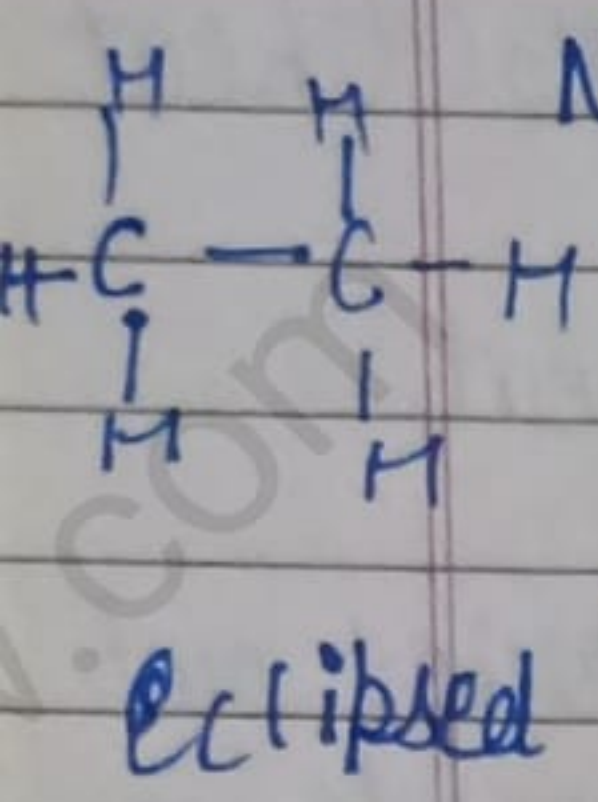 H H
C — C - H
H - C
H H
eclipsed
.com